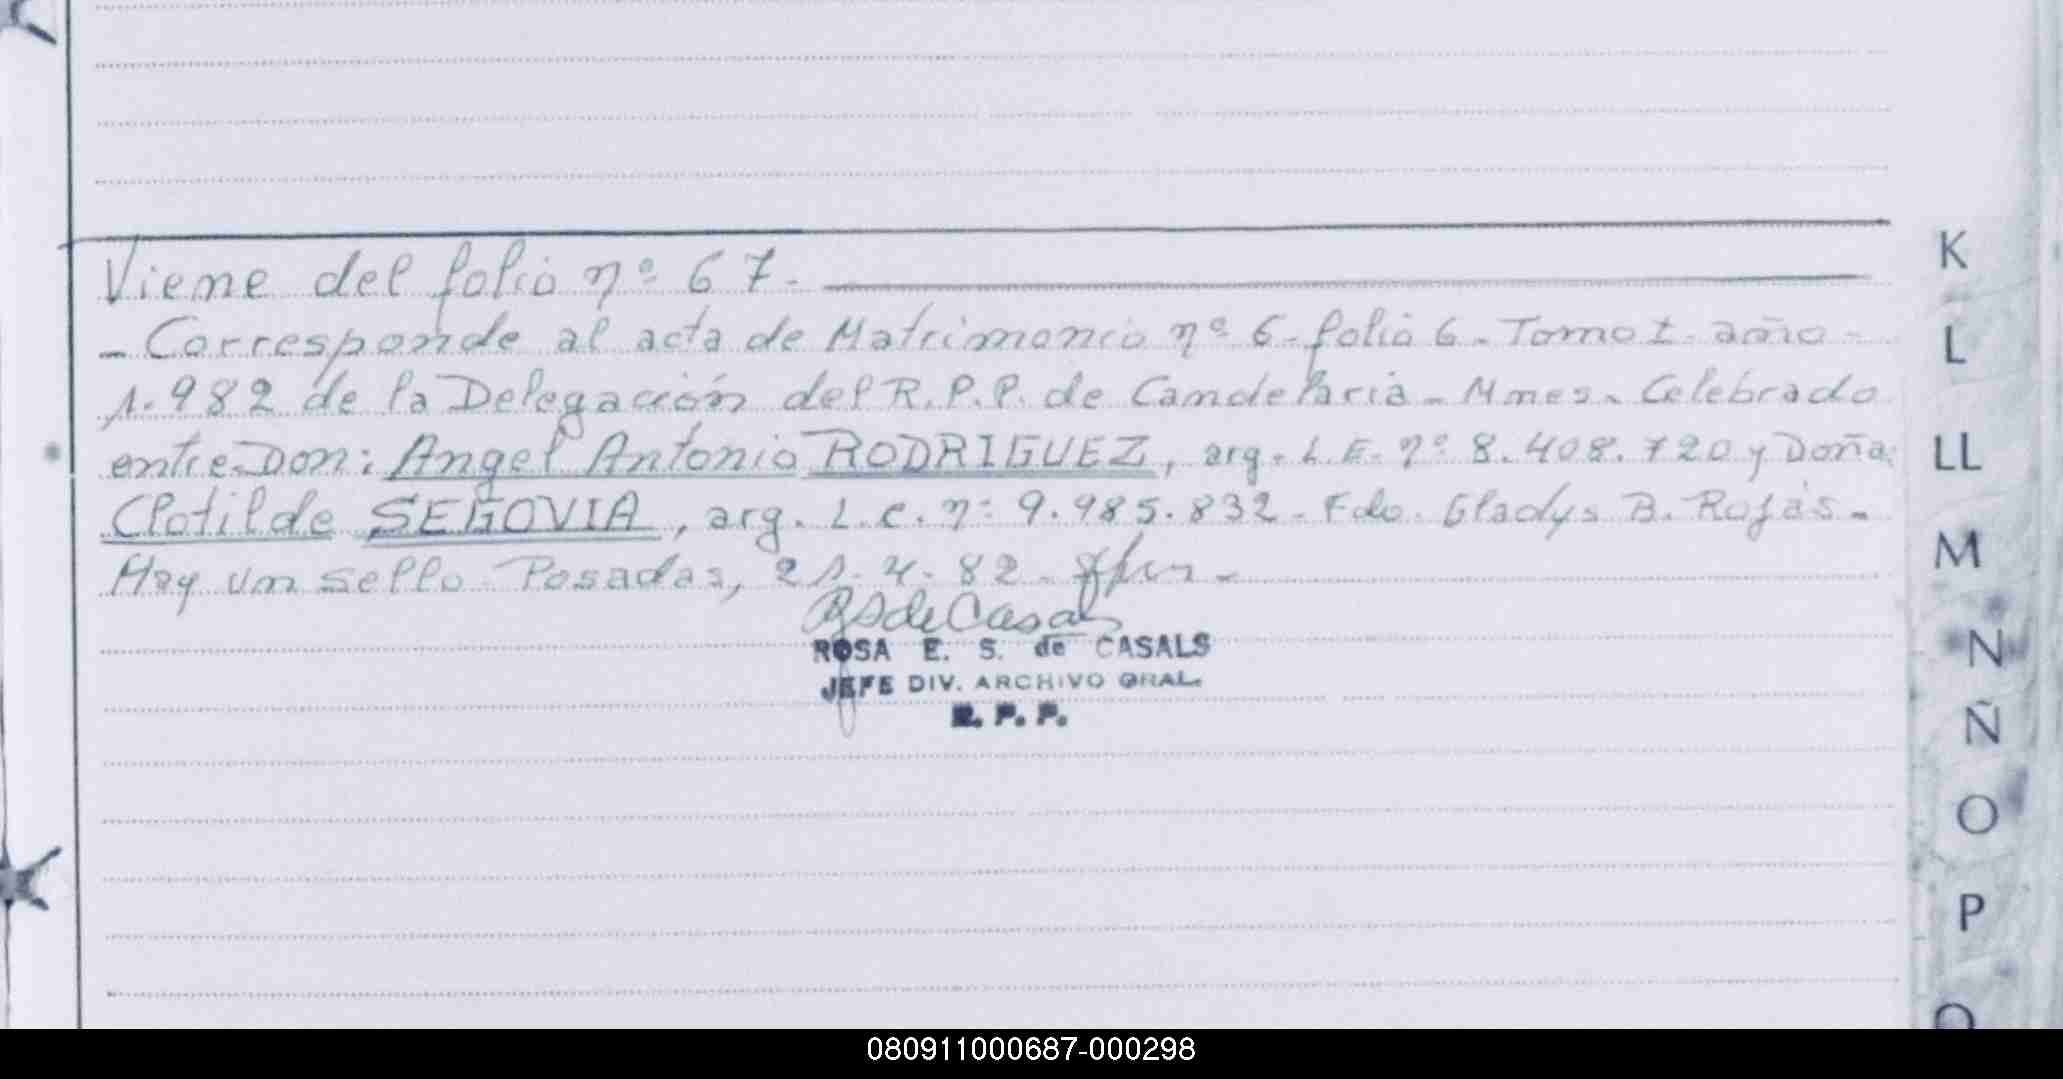 Viene del folio nº 67.
- Corresponde al acta de Matrimonio nº 6 - folio 6 - Tomo I. año -
1.982 de la Delegación del R.P.P. de Candelaria - Mnes. Celebrado
entre Don: Angel Antonio RODRIGUEZ, arg. L.E. nº 8.408.720 y Doña
Clotilde SEGOVIA, arg. L.C. nº 9.985.832 - Fdo. Gladys B. Rojas -
Hay un sello - Posadas, 21.4.82 -
RSdeCasals
ROSA E. S. de CASALS
JEFE DIV. ARCHIVO GRAL.
R. P. P.
K
L
LL
M
N
Ñ
O
P
Q
080911000687-000298